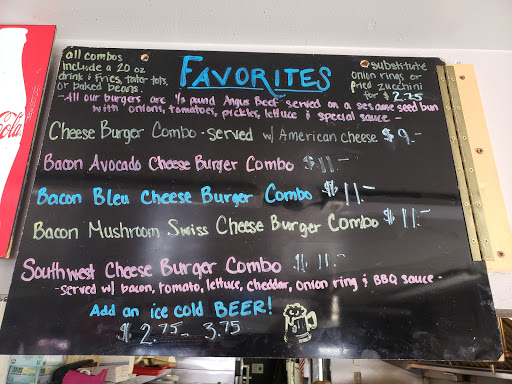 all combos
include a 20 oz
drink & Fries, tater tots,
or baked beans.
FAVORITES
substitute
onion rings or
fried zucchini
for $2.25
-All our burgers are 1/3 pound Angus Beef served on a sesame seed bun
with onions, tomatoes, pickles, lettuce & special sauce-
Cheese Burger Combo - served w/ American cheese $9.-
Bacon Avocado Cheese Burger Combo $11.-
Bacon Bleu Cheese Burger Combo $11.-
Bacon Mushroom Swiss Cheese Burger Combo $11.-
Southwest Cheese Burger Combo $11.-
-served w/ bacon, tomato, lettuce, cheddar, onion ring & BBQ sauce-
Add an ice cold BEER!
$2.75 - 3.75
Cola